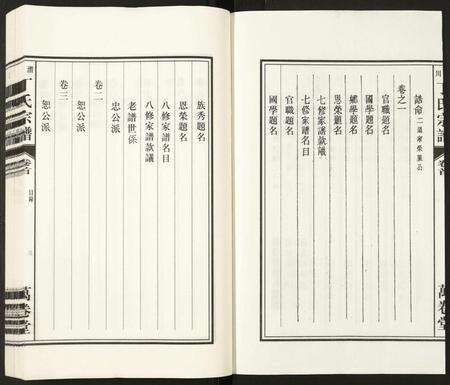 誥命
卷之一
官職題名
國學題名
鄉學題名
恩榮題名
七修家譜款議
七修家譜名目
官職題名
國學題名
丁氏宗譜
萬卷堂
族秀題名
恩榮題名
八修家譜名目
八修家譜款議
老譜世係
忠公派
卷二
恕公派
卷三
恕公派
氏宗譜
卷首
目錄
萬卷堂